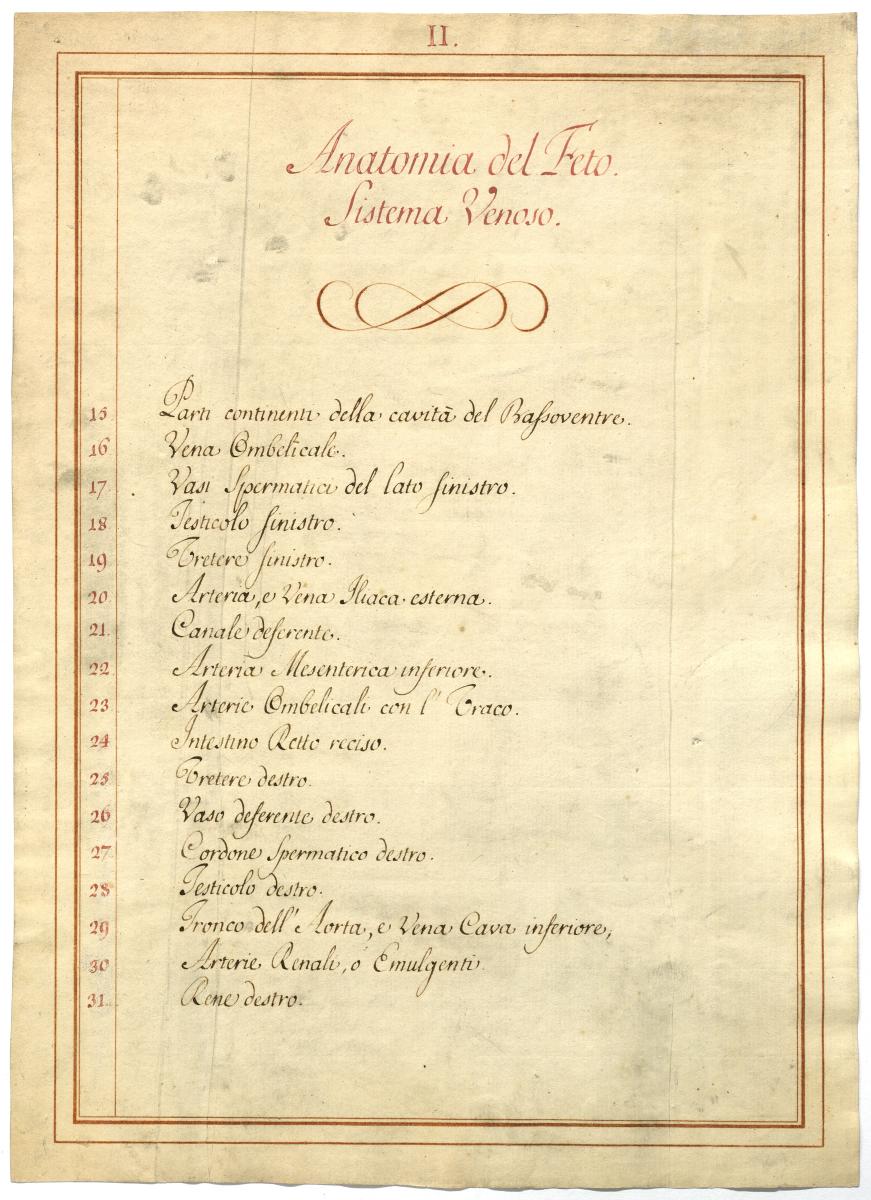 II.
Anatomia del Feto.
Sistema Venoso.
15 Parti continenti della cavità del Baſsoventre.
16 Vena Ombelicale.
17 Vasi Spermatici del lato sinistro.
18 Testicolo sinistro.
19 Uretere sinistro.
20 Arteria, e Vena Iliaca esterna.
21. Canale deferente.
22 Arteria Mesenterica inferiore.
23 Arterie Ombelicali con l' Uraco.
24 Intestino Retto reciso.
25 Uretere destro.
26 Vaso deferente destro.
27 Cordone Spermatico destro.
28 Testicolo destro.
29 Tronco dell' Aorta, e Vena Cava inferiore,
30 Arterie Renali, o Emulgenti
31. Rene destro.